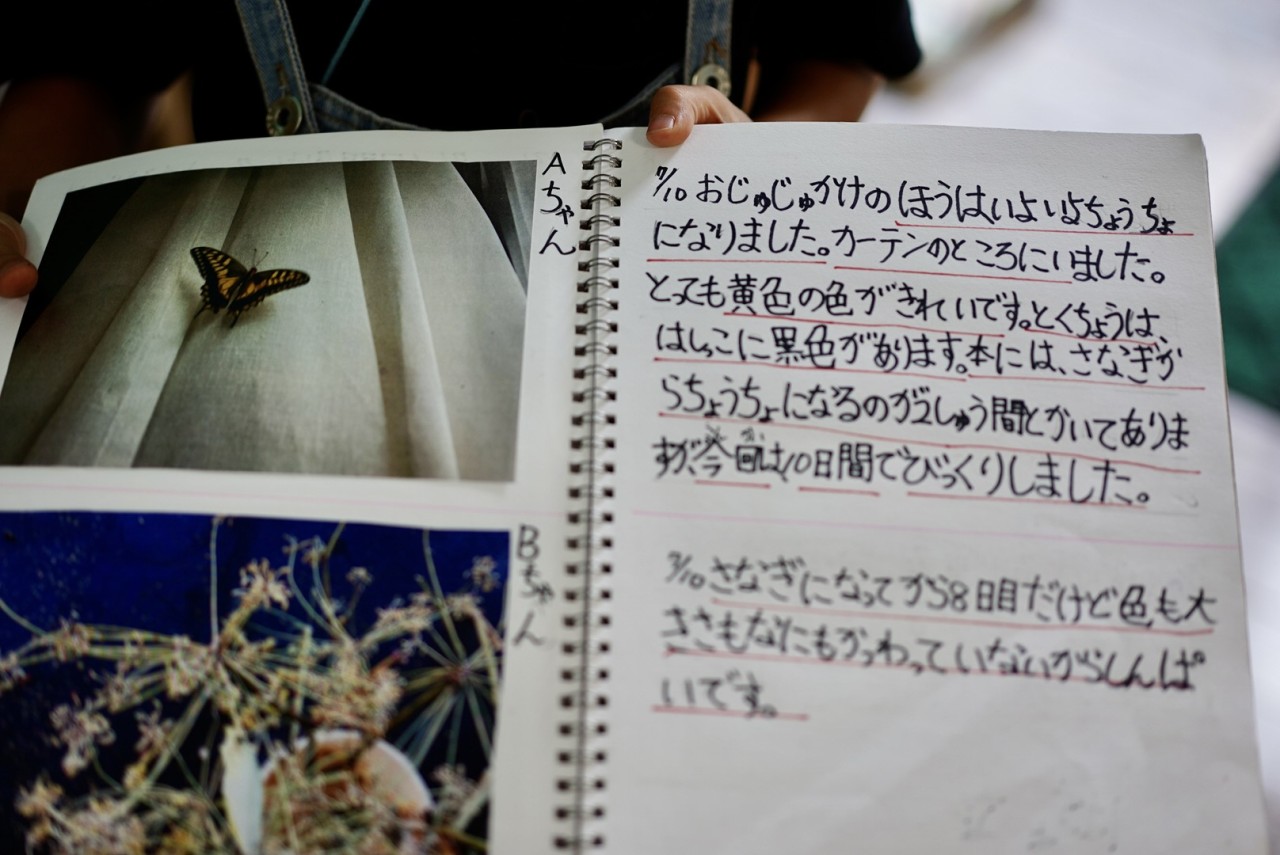 Aちゃん
7/10 おじゅじゅかけのほうはいよいよちょうちょ
になりました。カーテンのところにいました。
とっても黄色の色がきれいです。とくちょうは、
はしっこに黒色があります。本には、さなぎか
らちょうちょになるのが2しゅう間とかいてありま
すが、今回は、10日間でびっくりしました。
Bちゃん
7/10 さなぎになってから8日目だけど色も大
きさもなにもかわっていないからしんぱ
いです。